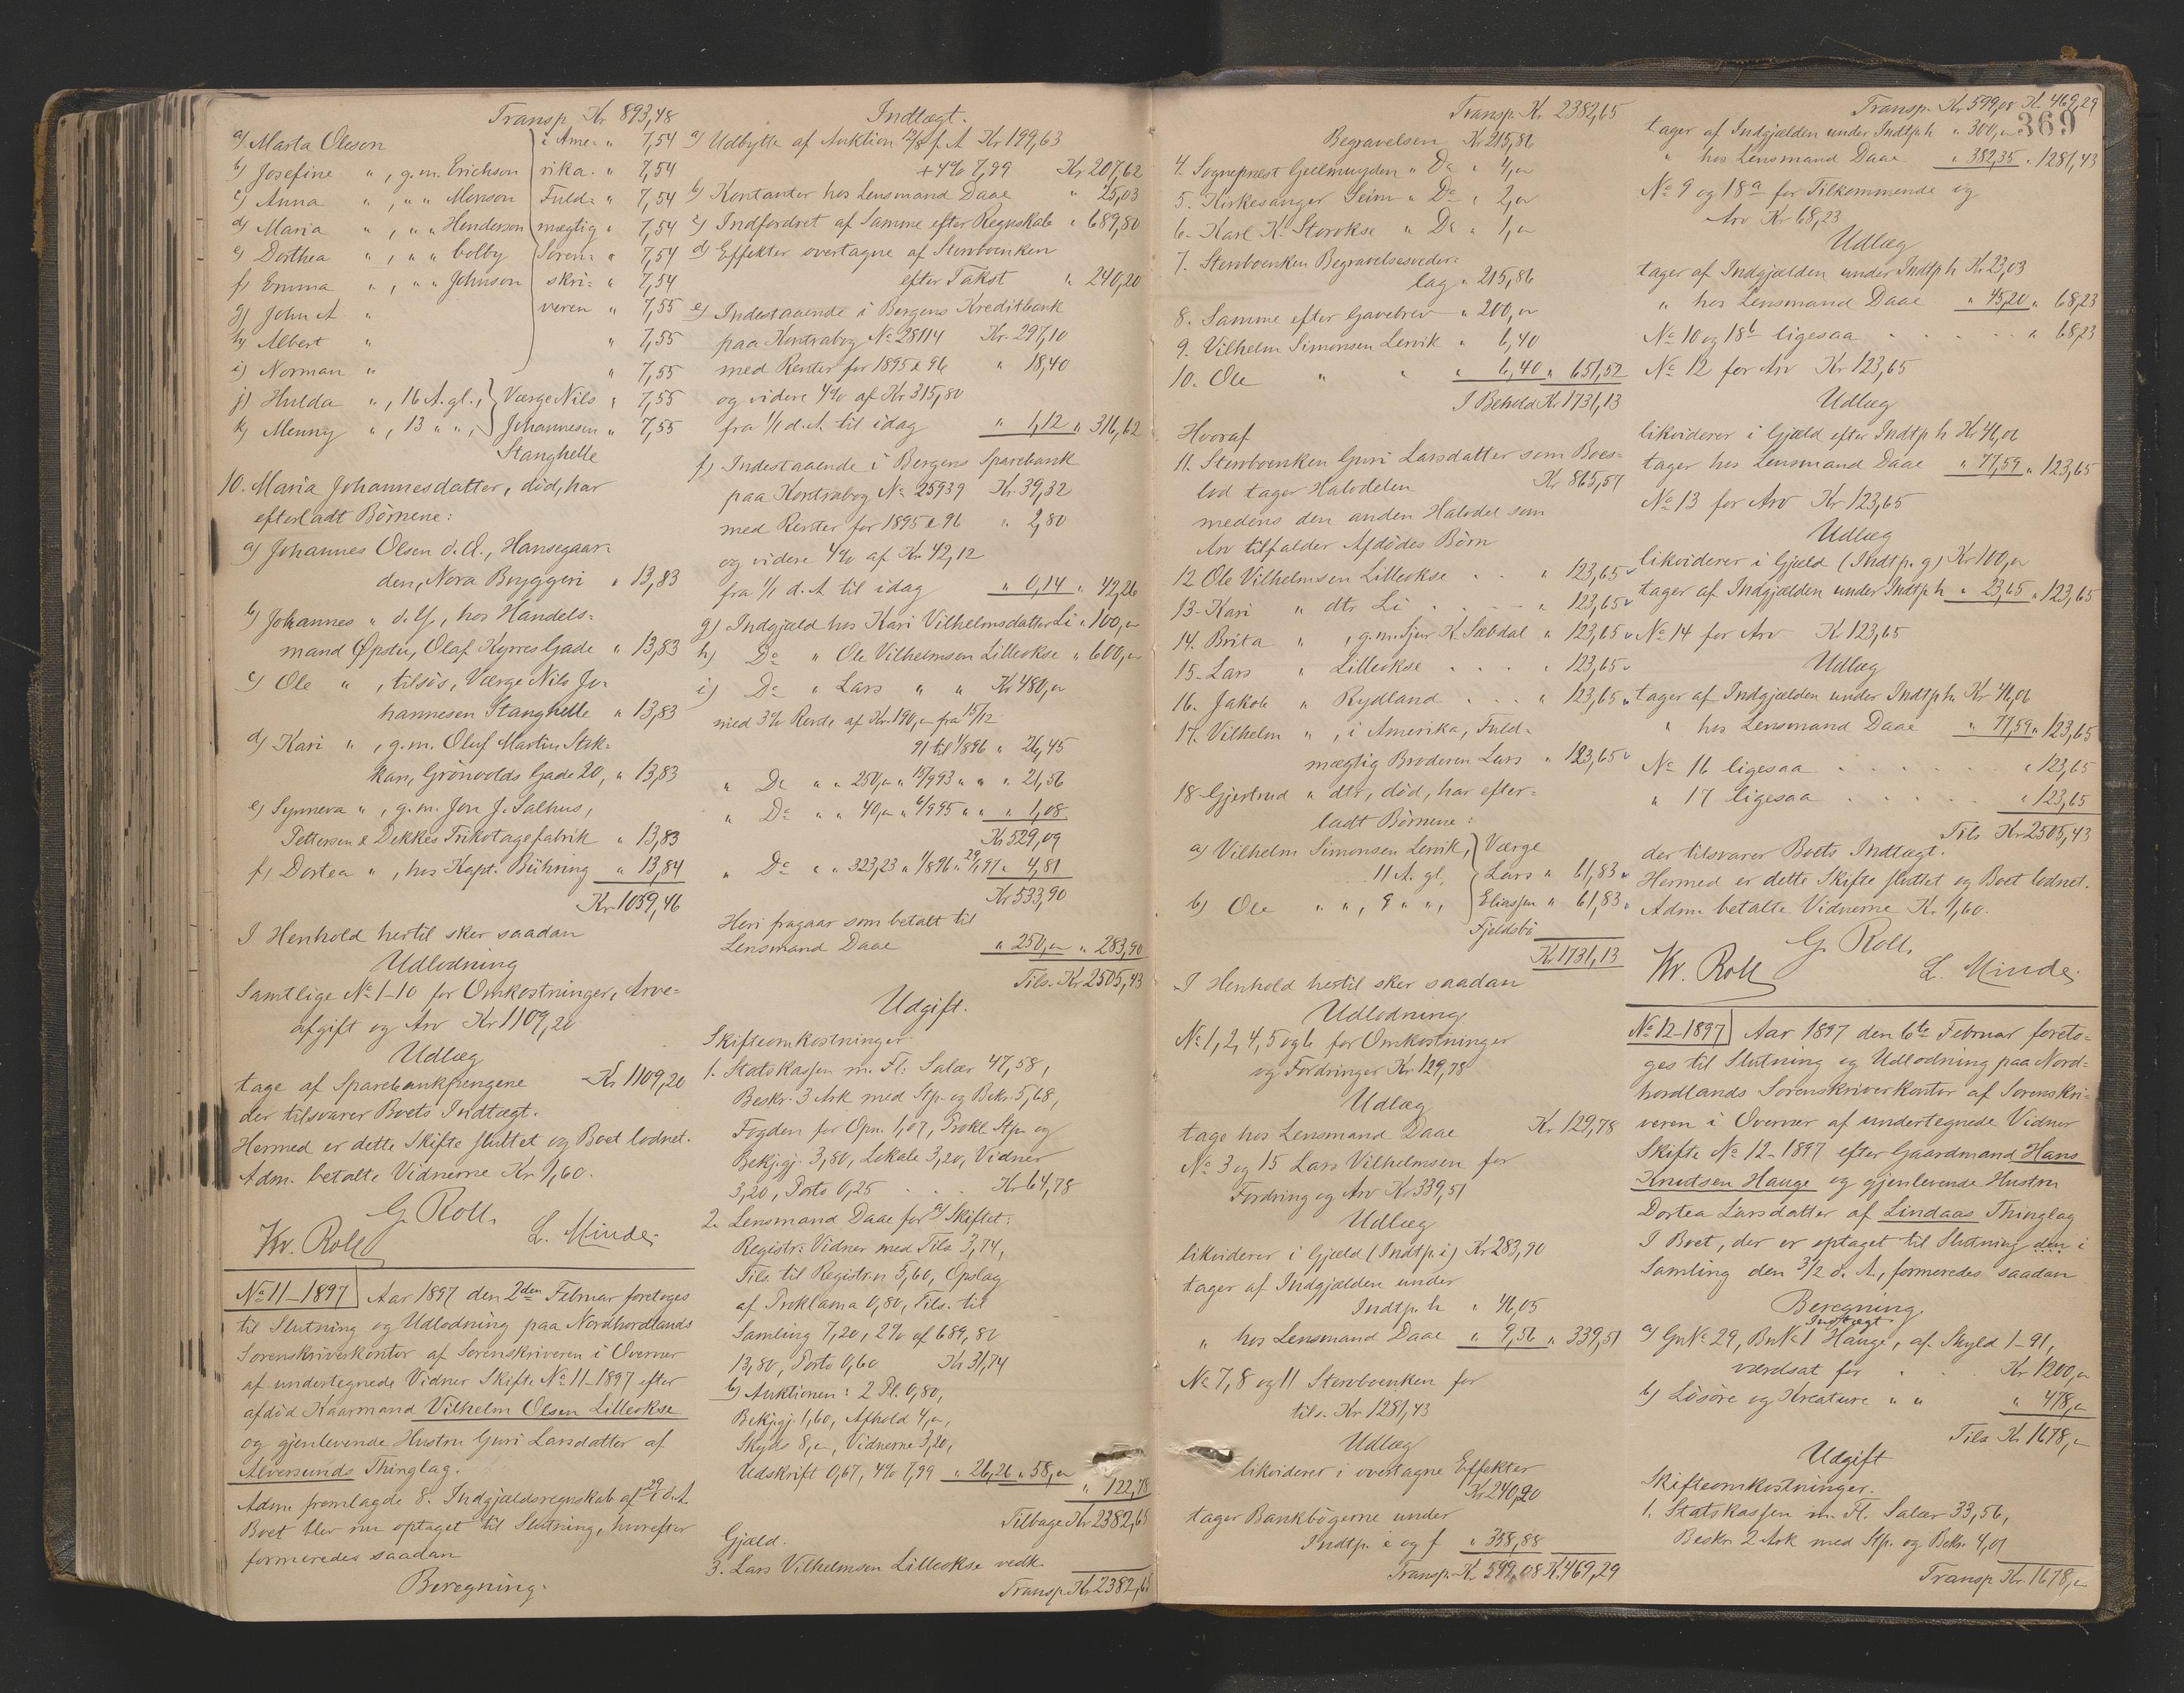 Transp. Kr 893,48
a) Marta Oleson } i Ame- " 7,54
b) Josefine " , g.m. Erichson rika. " 7,54
c) Anna " , " " Monson Fuld- " 7,54
d) Maria " , " " Henderson mægtig " 7,54
e) Dorthea " , " " Colby Soren- " 7,54
f) Emma " , " " Johnson skri- " 7,54
g) John A " veren " 7,55
h) Albert " " 7,55
i) Norman " " 7,55
j) Hulda " , 16 A. gl., } Værge Nils " 7,55
k) Menny " , 13 " " , Johannesen " 7,55
Stanghelle
10. Maria Johannesdatter, död, har
efterladt Börnene:
a) Johannes Olsen d. Æ., Hansegaar-
den, Nora Bryggeri " 13,83
b) Johannes " d. y., hos Handels-
mand Øpsten, Olaf Kyrres Gade " 13,83
c) Ole " , tilsös, Værge Nils Jo-
hannesen Stanghelle " 13,83
d) Kari " , g.m. Oluf Martin Stok-
kan, Grönvolds Gade 20, " 13,83
e) Synneva " , g.m. Jon J. Salhus,
Pettersen & Dekkes Trikotagefabrik " 13,83
f) Dortea " , hos Kapt. Bühring " 13,84
Kr 1039,46
I Henhold hertil sker saadan
Udlodning
Samtlige No 1-10 for Omkostninger, Arve-
afgift og Arv Kr 1109,20
Udlæg
tage af Sparebankpengene Kr 1109,20
der tilsvarer Boets Indtægt.
Hermed er dette Skifte sluttet og Boet lodnet.
Adm. betalte Vidnerne Kr. 1,60.
G. Roll.
Kr. Roll L. Minde.
No 11-1897 Aar 1897 den 2den Februar foretoges
til Slutning og Udlodning paa Nordhordlands
Sorenskriverkontor af Sorenskriveren i Overvær
af undertegnede Vidner Skifte No 11-1897 efter
afdöd Kaarmand Vilhelm Olsen Lilleokse
og gjenlevende Hustru Guri Larsdatter af
Alversunds Thinglag.
Adm. fremlagde 8. Indgjældsregnskab af 29/1 d. A.
Boet blev nu optaget til Slutning, hvorefter
formeredes saadan
Beregning.
Indtægt.
a) Udbytte af Auktion 12/8 f. A Kr 199,63
+ 4% 7,99 Kr 207,62
b) Kontanter hos Lensmand Daae " 25,03
c) Indfordret af Samme efter Regnskab " 689,80
d) Effekter overtagne af Stervboenken
efter Takst " 240,20
e) Indestaaende i Bergens Kreditbank
paa Kontrabog No 28114 Kr. 297,10
med Renter for 1895 & 96 " 18,40
og videre 4% af Kr 315,80
fra 1/1 d. A. til idag " 1,12 " 316,62
f) Indestaaende i Bergens Sparebank
paa Kontrabog No 25939 Kr. 39,32
med Renter for 1895 & 96 " 2,80
og videre 4% af Kr 42,12
fra 1/1 d. A til idag " 0,14 " 42,26
g) Indgjæld hos Kari Vilhelmsdatter Li " 100,"
h) Do " Ole Vilhelmsen Lilleokse " 600,"
i) Do " Lars " " Kr 480,"
med 3% Rente af Kr. 190," fra 15/12
91 til 1/8 96 " 26,45
" Do " " 250," " 15/9 93 " " " 21,56
" Do " " 40," " 6/9 95 " " " 1,08
Kr 529,09
" Do " " 323,23 " 1/8 96 " 29/1 97 " 4,81
Kr 533,90
Heri fragaar som betalt til
Lensmand Daae " 250," " 283,90
Tils. Kr 2505,43
Udgift.
Skifteomkostninger.
1. Statskassen m. Fl. Salær 47,58,
Beskr. 3 Ark med Stp. og Bekr. 5,68,
Fogden for Opn. 1,07, Prokl. Stp. og
Bekjgj. 3,80, Lokale 3,20, Vidner
3,20, Porto 0,25 . . . Kr 64,78
2. Lensmand Daae for a) Skiftet:
Registr. Vidner med Tils. 3,74,
Tils. til Registr.n 5,60, Opslag
af Proklama 0,80, Tils. til
Samling 7,20, 2% af 689,80
13,80, Porto 0,60 Kr 31,74
b) Auktionen: 2 Pl. 0,80,
Bekjgj. 1,60, Afhold 4,",
Skyds 8,", Vidnerne 3,20,
Udskrift 0,67, 4% 7,99 " 26,26 " 58,"
" 122,78
Tilbage Kr 2382,65
Gjæld.
3. Lars Vilhelmsen Lilleokse vedk.
Transp. Kr 2382,65
Transp. Kr 2382,65
Begravelsen Kr 215,86
4. Sogneprest Gjellmuyden " Do " 4,"
5. Kirkesanger Seim " Do " 2,"
6. Karl K. Storokse " Do " 1,"
7. Stervboenken Begravelsesveder-
lag " 215,86
8. Samme efter Gavebrev " 200,"
9. Vilhelm Simonsen Lervik " 6,40
10. Ole " " " 6,40 " 651,52
I Behold Kr 1731,13
Hvoraf
11. Stervboenken Guri Larsdatter som Boes-
lod tager Halvdelen Kr 865,57
medens den anden Halvdel som
Arv tilfalder Afdödes Börn
12 Ole Vilhelmsen Lilleokse . . " 123,65
13. Kari " dtr. Li . . . " 123,65
14. Brita " , g.m. Sjur K. Sæbdal " 123,65
15. Lars " Lilleokse . . . " 123,65
16. Jakob " Rydland . . . " 123,65
17. Vilhelm " , i Amerika, Fuld-
mægtig Broderen Lars " 123,65
18 Gjertrud " dtr, död, har efter-
ladt Börnene:
a) Vilhelm Simonsen Lervik, } Værge
11 A. gl. Lars " 61,83
b) Ole " " , 9 " " , Eliassen " 61,83
Fjeldsbö
Kr 1731,13
I Henhold hertil sker saadan
Udlodning
No 1, 2, 4, 5 og 6 for Omkostninger
og Fordringer Kr. 129,78
Udlæg
tage hos Lensmand Daae Kr. 129,78
No 3 og 15 Lars Vilhelmsen for
Fordring og Arv Kr 339,51
Udlæg
likviderer i Gjæld (Indtp. i) Kr 283,90
tager af Indgjælden under
Indtp. h " 46,05
" hos Lensmand Daae " 9,56 " 339,51
No 7, 8 og 11 Stervboenken for
tils. Kr 1281,43
Udlæg
likviderer i overtagne Effekter
Kr 240,20
tager Bankbögerne under
Indtp. e og f " 358,88
Transp. Kr. 599,08 K. 469,29
Transp. Kr. 599,08 K. 469,29
369
tager af Indgjælden under Indtp h " 300,"
" hos Lensmand Daae " 382,35 " 1281,43
No 9 og 18a for Tilkommende og
Arv Kr 68,23
Udlæg
tager af Indgjælden under Indtp h Kr 23,03
" hos Lensmand Daae " 45,20 " 68,23
No 10 og 18b ligesaa . . . . . " 68,23
No 12 for Arv Kr 123,65
Udlæg
likviderer i Gjæld efter Indtp h Kr 46,06
tager hos Lensmand Daae " 77,59 " 123,65
No 13 for Arv Kr 123,65
Udlæg
likviderer i Gjæld (Indtp. g) Kr 100,"
tager af Indgjælden under Indtp h " 23,65 " 123,65
No 14 for Arv Kr 123,65
Udlæg
tager af Indgjælden under Indtp h Kr 46,06
" hos Lensmand Daae " 77,59 " 123,65
No 16 ligesaa . . . . . . " 123,65
" 17 ligesaa . . . . . " 123,65
Tils Kr 2505,43
der tilsvarer Boets Indtægt.
Hermed er dette Skifte sluttet og Boet lodnet.
Adm. betalte Vidnerne Kr. 1,60.
G. Roll.
Kr. Roll L. Minde.
No 12-1897 Aar 1897 den 6te Februar foreto-
ges til Slutning og Udlodning paa Nord-
hordlands Sorenskriverkontor af Sorenskri-
veren i Overvær af undertegnede Vidner
Skifte No 12-1897 efter Gaardmand Hans
Knudsen Hauge og gjenlevende Hustru
Dortea Larsdatter af Lindaas Thinglag
I Boet, der er optaget til Slutning den i
Samling den 3/2 d. A., formeredes saadan
Beregning.
Indtægt.
a) Gn No 29, Bn No 1 Hauge, af Skyld 1-91,
værdsat for . . Kr 1200,"
b) Lösöre og Kreature " " " 478,"
Tils Kr 1678,"
Udgift
Skifteomkostninger.
1. Statskassen m. Fl. Salær 33,56,
Beskr. 2 Ark med Stp. og Bekr. 4,01
Transp Kr. 1678,"